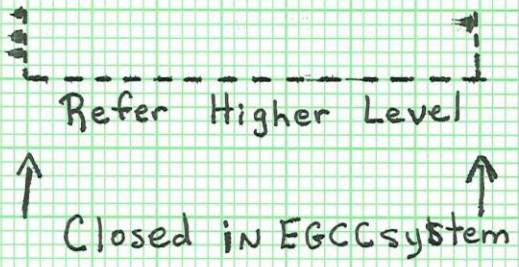 Refer Higher Level
Closed iN EGCCsystem